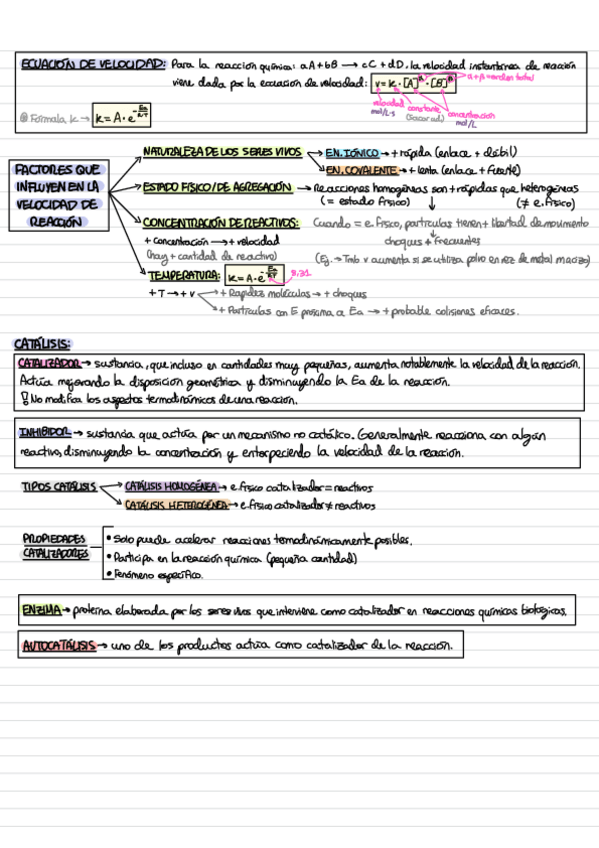 ECUACIÓN DE VELOCIDAD: Para la reacción química: aA+bB → cC + dD, la velocidad instantánea de reacción
viene dada por la ecuación de velocidad: v=k·[A]^α·[B]^β α+β=orden total
velocidad mol/L·s constante (sacar ud.) concentración mol/L
@ Fórmula k → k = A·e^-Ea/RT
FACTORES QUE INFLUYEN EN LA VELOCIDAD DE REACCIÓN
NATURALEZA DE LOS SERES VIVOS → EN. IÓNICO → + rápida (enlace + débil)
EN. COVALENTE → + lenta (enlace + fuerte)
ESTADO FÍSICO/DE AGREGACIÓN → Reacciones homogéneas son + rápidas que heterogéneas
(= estado físico) ↓ (≠ e. físico)
CONCENTRACIÓN DE REACTIVOS: Cuando = e. físico, partículas tienen + libertad de movimiento
+ concentración → + velocidad choques + frecuentes
(hay + cantidad de reactivo) (Ej. → Tmb v aumenta si se utiliza polvo en vez de metal macizo)
TEMPERATURA: k = A·e^-Ea/RT 8,31
+ T → + v + Rapidez moléculas → + choques
+ Partículas con E próxima a Ea → + probable colisiones eficaces.
CATÁLISIS:
CATALIZADOR → sustancia, que incluso en cantidades muy pequeñas, aumenta notablemente la velocidad de la reacción.
Actúa mejorando la disposición geométrica y disminuyendo la Ea de la reacción.
! No modifica los aspectos termodinámicos de una reacción.
INHIBIDOR → sustancia que actúa por un mecanismo no catálico. Generalmente reacciona con algún
reactivo, disminuyendo la concentración y entorpeciendo la velocidad de la reacción.
TIPOS CATÁLISIS → CATÁLISIS HOMOGÉNEA → e. físico catalizador = reactivos
CATÁLISIS HETEROGÉNEA → e. físico catalizador ≠ reactivos
PROPIEDADES CATALIZADORES
• Solo puede acelerar reacciones termodinámicamente posibles.
• Participa en la reacción química (pequeña cantidad)
• Fenómeno específico.
ENZIMA → proteína elaborada por los seres vivos que interviene como catalizador en reacciones químicas biológicas.
AUTOCATÁLISIS → uno de los productos actúa como catalizador de la reacción.